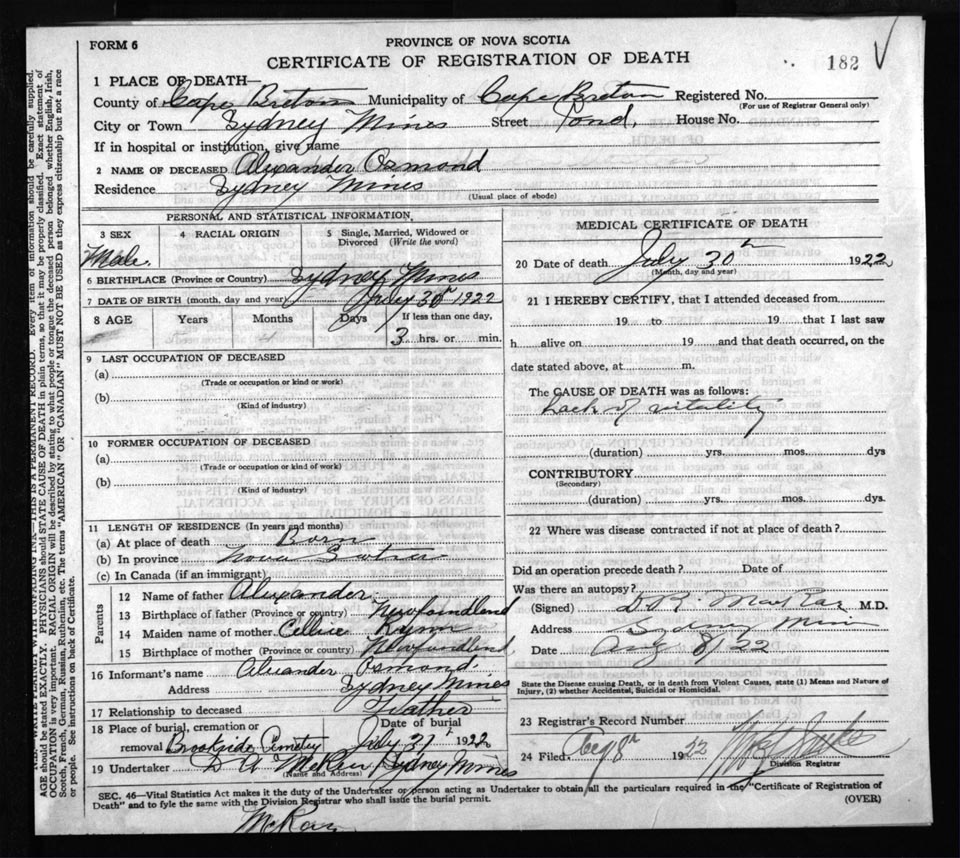 FORM 6
PROVINCE OF NOVA SCOTIA
CERTIFICATE OF REGISTRATION OF DEATH
182
1 PLACE OF DEATH—
County of Cape Breton Municipality of Cape Breton Registered No.
(For use of Registrar General only)
City or Town Sydney Mines Street Pond, House No.
If in hospital or institution, give name
2 NAME OF DECEASED Alexander Osmond
Residence Sydney Mines
(Usual place of abode)
PERSONAL AND STATISTICAL INFORMATION
3 SEX 4 RACIAL ORIGIN 5 Single, Married, Widowed or
Divorced (Write the word)
Male.
6 BIRTHPLACE (Province or Country) Sydney Mines
7 DATE OF BIRTH (month, day and year) July 30 1922
8 AGE Years Months Days If less than one day,
3 hrs. or min.
9 LAST OCCUPATION OF DECEASED
(a)
(Trade or occupation or kind or work)
(b)
(Kind of industry)
10 FORMER OCCUPATION OF DECEASED
(a)
(Trade or occupation or kind of work)
(b)
(Kind of industry)
11 LENGTH OF RESIDENCE (In years and months)
(a) At place of death Born
(b) In province Nova Scotia
(c) In Canada (if an immigrant)
Parents
12 Name of father Alexander
13 Birthplace of father (Province or country) Newfoundland
14 Maiden name of mother
15 Birthplace of mother (Province or country) Newfoundland
16 Informant's name Alexander Osmond
Address Sydney Mines
17 Relationship to deceased Father
18 Place of burial, cremation or Date of burial
removal Brookside Cemetery July 31 1922
19 Undertaker Sydney Mines
(Name and Address)
MEDICAL CERTIFICATE OF DEATH
20 Date of death July 30th 1922
(Month, day and year)
21 I HEREBY CERTIFY, that I attended deceased from
19 to 19 that I last saw
h alive on 19 and that death occurred, on the
date stated above, at m.
The CAUSE OF DEATH was as follows:
Lack of vitality
(duration) yrs. mos. dys
CONTRIBUTORY
(Secondary)
(duration) yrs. mos. dys.
22 Where was disease contracted if not at place of death?
Did an operation precede death? Date of
Was there an autopsy?
(Signed) M.D.
Address Sydney Mines
Date Aug 8/22
State the Disease causing Death, or in death from Violent Causes, state (1) Means and Nature of
Injury, (2) whether Accidental, Suicidal or Homicidal.
23 Registrar's Record Number
24 Filed, 19
Division Registrar
SEC. 46—Vital Statistics Act makes it the duty of the Undertaker or person acting as Undertaker to obtain all the particulars required in the "Certificate of Registration of
Death" and to fyle the same with the Division Registrar who shall issue the burial permit. (OVER)
McRae
WRITE PLAINLY WITH UNFADING INK—THIS IS A PERMANENT RECORD. Every item of information should be carefully supplied.
AGE should be stated EXACTLY. PHYSICIANS should STATE CAUSE OF DEATH in plain terms, so that it may be properly classified. Exact statement of
OCCUPATION is very important. RACIAL ORIGIN will be described by stating to what people or tongue the deceased person belonged whether English, Irish,
Scotch, French, German, Russian, Ruthenian, etc. The terms "AMERICAN" OR "CANADIAN" MUST NOT BE USED as they express citizenship but not a race
or people. See instructions on back of Certificate.